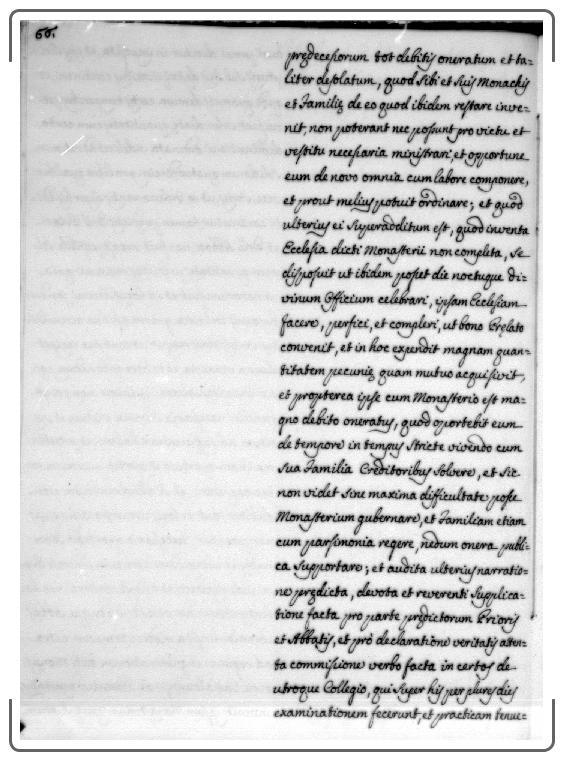 66.
prędecessorum tot debitis oneratum et ta=
liter desolatum, quod Sibi et Suis Monachis
et Familię de eo quod ibidem restare inve=
nit, non poterant nec possunt pro victu et
vestitu necessaria ministrari, et opportune
eum de novo omnia cum labore componere,
et prout melius potuit ordinare; et quod
ulterius ei Superadditum est, quod inventa
Ecclesia dicti Monasterii non completa, Se
disposuit ut ibidem posset die noctuque di=
vinum Officium celebrari, ipsam Ecclesiam
facere, perfici, et compleri, ut bono Pręlato
convenit, et in hoc expendit magnam quan=
titatem pecunię quam mutuo acquisivit,
et propterea ipse cum Monasterio est ma=
gno debito oneratus, quod oportebit eum
de tempore in tempus Stricte vivendo cum
Sua Familia Creditoribus Solvere, et Sic
non videt Sine maxima difficultate posse
Monasterium gubernare, et Familiam etiam
cum parsimonia regere, nedum onera publi=
ca Supportare; et audita ulterius narratio=
ne prędicta, devota et reverenti Supplica=
tione facta pro parte predictorum Prioris
et Abbatis, et pro declaratione veritatis atten=
ta commissione verbo facta in certos de
utroque Collegio, qui Super his per plures dies
examinationem fecerunt, et practicam tenue=